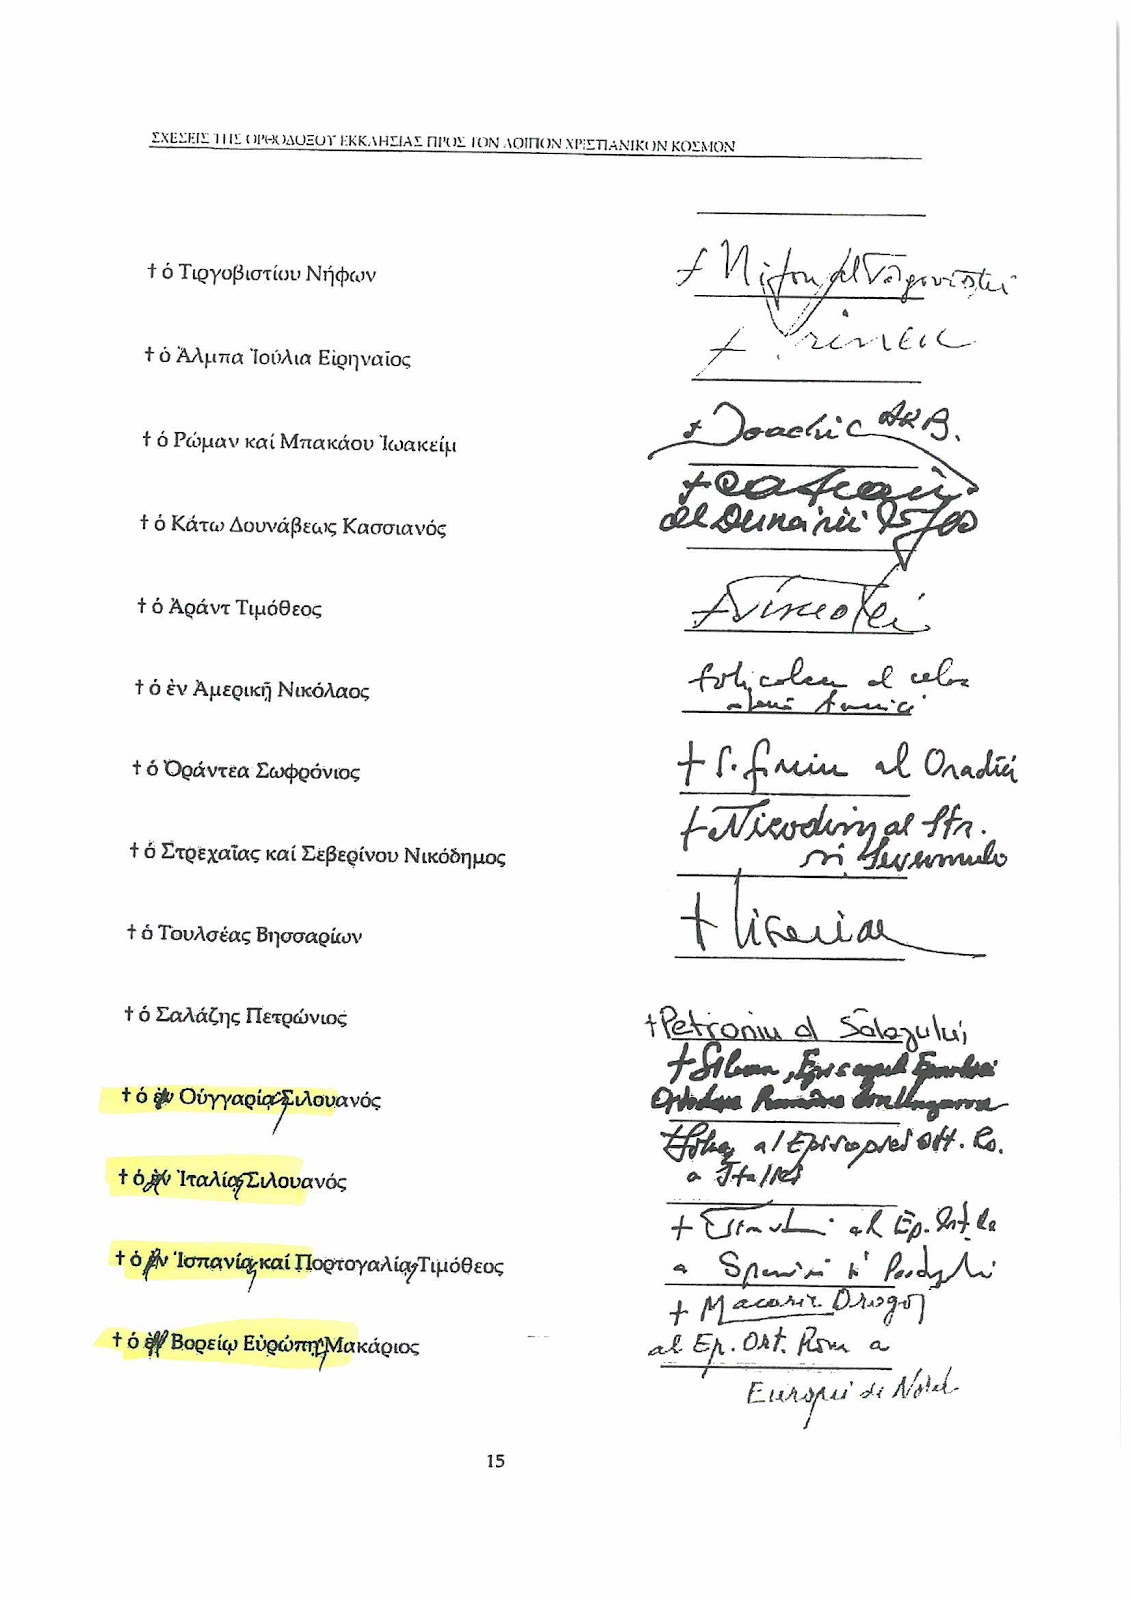 ΣΧΕΣΕΙΣ ΤΗΣ ΟΡΘΟΔΟΞΟΥ ΕΚΚΛΗΣΙΑΣ ΠΡΟΣ ΤΟΝ ΛΟΙΠΟΝ ΧΡΙΣΤΙΑΝΙΚΟΝ ΚΟΣΜΟΝ
† ὁ Τιργοβιστίου Νήφων
† Nifon al Târgoviștei
† ὁ Ἄλμπα Ἰούλια Εἰρηναῖος
† Irineu
† ὁ Ρώμαν καί Μπακάου Ἰωακείμ
† Ioachim ARB.
† ὁ Κάτω Δουνάβεως Κασσιανός
al Dunării
† ὁ Ἀράντ Τιμόθεος
† Timotei
† ὁ ἐν Ἀμερικῇ Νικόλαος
al
† ὁ Ὀράντεα Σωφρόνιος
† al Oradiei
† ὁ Στρεχαΐας καί Σεβερίνου Νικόδημος
† Nicodim al Str.
și Severinului
† ὁ Τουλσέας Βησσαρίων
† Visarion
† ὁ Σαλάζης Πετρώνιος
† Petroniu al Sălajului
† ὁ ἐν Οὑγγαρίᾳ Σιλουανός
† Siluan, Episcopul
Ortodoxe Române din Ungaria
† ὁ ἐν Ἰταλίᾳ Σιλουανός
al Episcopiei Ort. Ro.
a Italiei
† ὁ ἐν Ἰσπανίᾳ καί Πορτογαλίᾳ Τιμόθεος
† al Ep.
a Spaniei și
† ὁ ἐν Βορείῳ Εὐρώπῃ Μακάριος
† Macarie Drăgoi
al Ep. Ort. Rom a
Europei de Nord
15